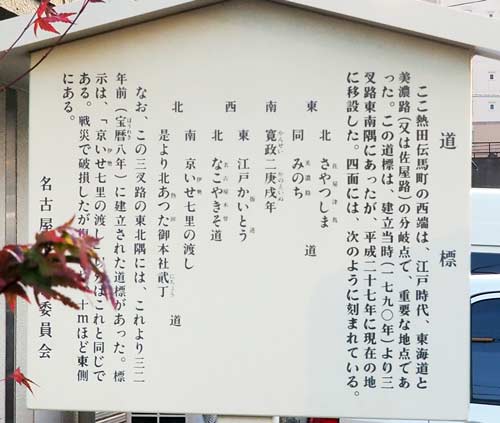 道標
ここ熱田伝馬町の西端は、江戸時代、東海道と
美濃路(又は佐屋路)の分岐点で、重要な地点であ
った。この道標は、建立当時(一七九〇年)より三
叉路東南隅にあったが、平成二十七年に現在の地
に移設した。四面には、次のように刻まれている。
東 北 さやつしま 佐屋津島
同 みのち 美濃路 道
南 寛政二庚戌年 かんせい かのえいぬ
西 東 江戸かいとう 街道
北 なこやきそ道 名古屋木曽
北 南 京いせ七里の渡し 伊勢
是より北あつた御本社弐丁 熱田 にちょう 道
なお、この三叉路の東北隅には、これより三二
年前(宝暦八年)に建立された道標があった。標 ほうれき
示は、「京いせ七里の渡し 伊勢 はこれと同じで
ある。戦災で破損したが 十mほど東側
にある。
名古屋 委員会